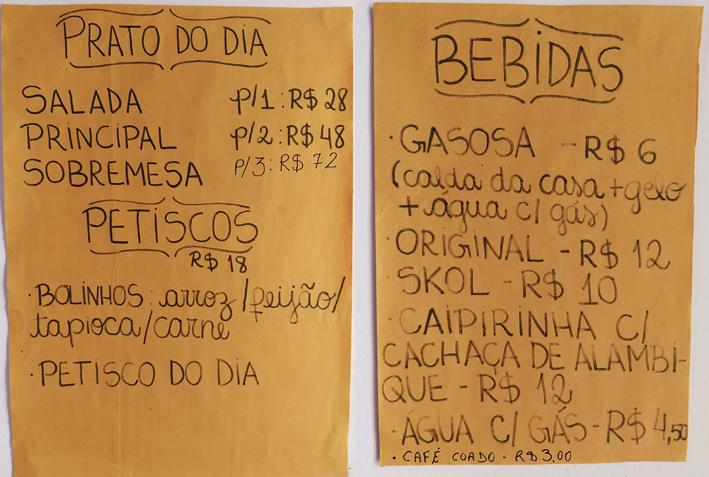 PRATO DO DIA
SALADA p/1: R$ 28
PRINCIPAL p/2: R$ 48
SOBREMESA p/3: R$ 72
PETISCOS
R$ 18
· BOLINHOS: arroz/feijão/
tapioca/carne
· PETISCO DO DIA
BEBIDAS
· GASOSA - R$ 6
(calda da casa + gelo
+ água c/ gás)
· ORIGINAL - R$ 12
· SKOL - R$ 10
· CAIPIRINHA C/
CACHAÇA DE ALAMBI-
QUE - R$ 12
· ÁGUA C/ GÁS - R$ 4,50
· CAFÉ COADO - R$ 3,00